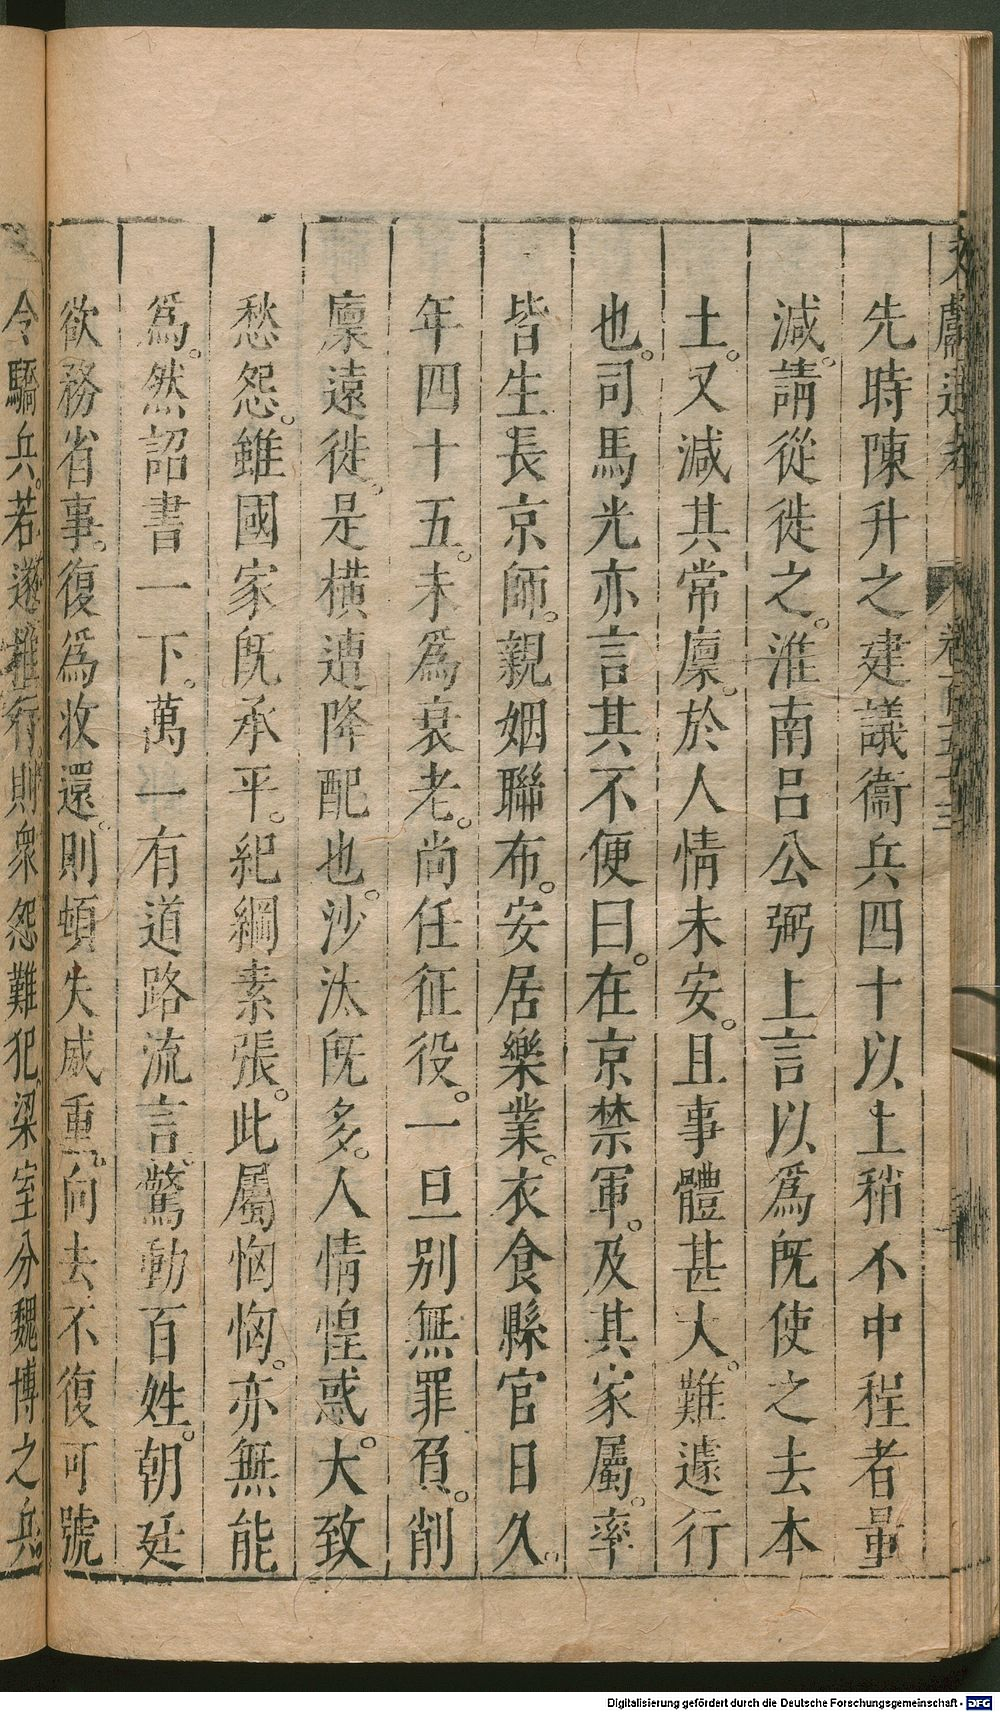 文獻通考 卷百五十三
先時陳升之建議衞兵四十以上稍不中程者量
減。請從徙之。淮南呂公弼上言以爲旣使之去本
土。又減其常廩。於人情未安。且事體甚大。難遽行
也。司馬光亦言其不便曰。在京禁軍。及其家屬。率
皆生長京師。親姻聯布。安居樂業。衣食縣官日久。
年四十五。未爲衰老。尚任征役。一旦别無罪負。削
廩遠徙。是橫遭降配也。沙汰旣多。人情惶惑。大致
愁怨。雖國家旣承平。紀綱素張。此屬恟恟。亦無能
爲。然詔書一下。萬一有道路流言。驚動百姓。朝廷
欲務省事。復爲收還。則頓失威重。向去不復可號
令驕兵。若遂推行。則衆怨難犯。梁室分魏博之兵。
Digitalisierung gefördert durch die Deutsche Forschungsgemeinschaft - DFG